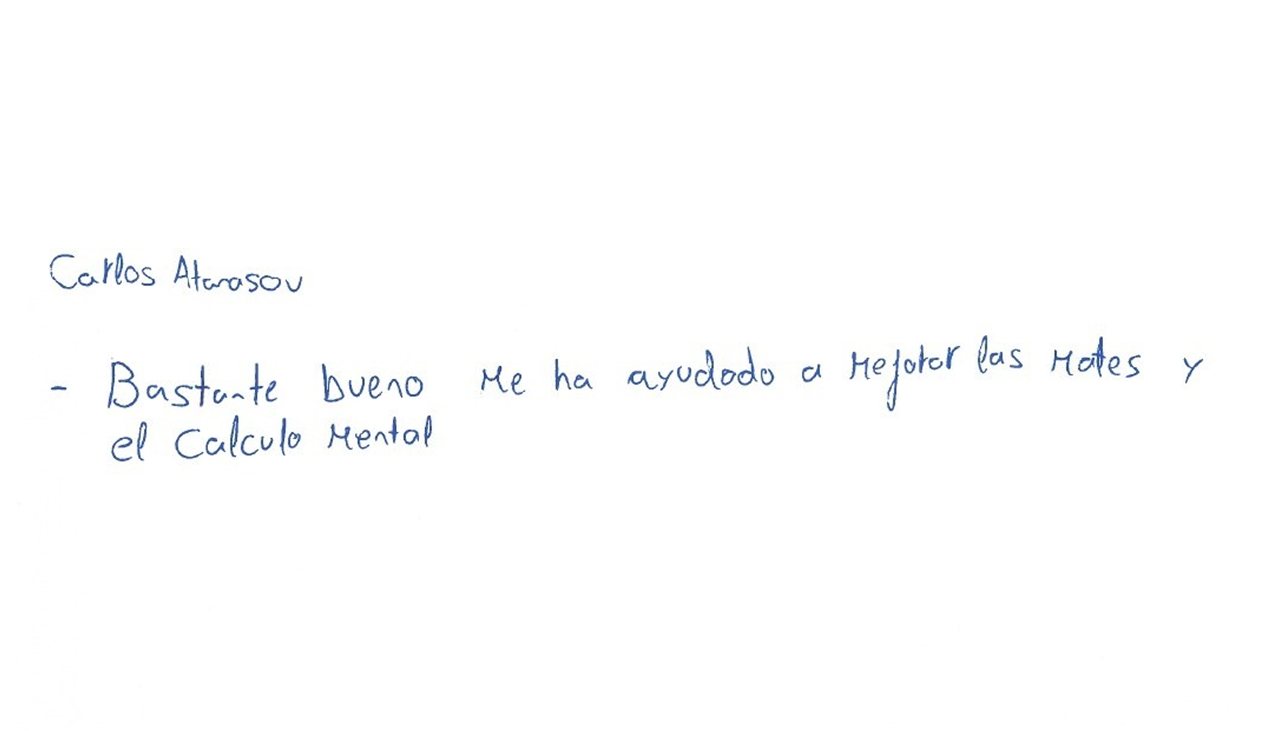 Carlos Atanasov
- Bastante bueno Me ha ayudado a Mejorar las Mates y
el Calculo Mental